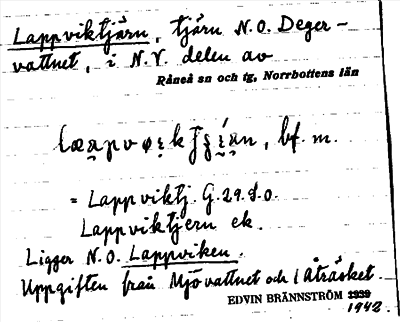 Lappviktjärn, tjärn N.O. Deger-
vattnet, i N.V. delen av
Råneå sn och tg, Norrbottens län
bf. m.
= Lappviktj. G.29.d.o.
Lappviktjern ek.
Ligger N.O. Lappviken.
Uppgiften från Mjövattnet och i Åträsket.
EDVIN BRÄNNSTRÖM 1939
1942.